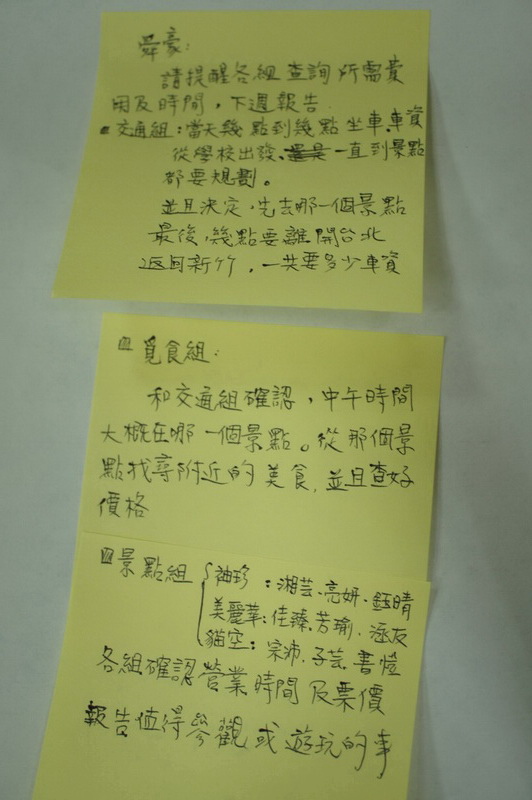 舜豪:
請提醒各組查詢所需費
用及時間，下週報告.
交通組:當天幾點到幾點坐車、車資
從學校出發、還是一直到景點
都要規劃。
並且決定,先去那一個景點
最後,幾點要離開台北
返回新竹，一共要多少車資
覓食組:
和交通組確認，中午時間
大概在哪一個景點。從那個景
點找尋附近的美食,並且查好
價格
景點組 袖珍:湘芸、亮妍、鈺晴
美麗華:佳臻、芳瑜、涵友
貓空:宗沛、子芸、書愷
各組確認營業時間及票價
報告值得參觀或遊玩的事